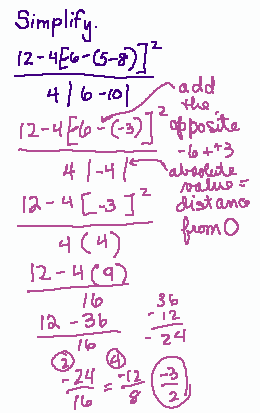 Simplify.
12-4[-6-(5-8)]²
4|6-10|
12-4[-6-(-3)]²
4|-4|
add
the
opposite
-6++3
absolute
value =
distance
from 0
12-4[-3]²
4(4)
12-4(9)
16
12-36
16
36
-12
-24
② ④
-24/16 = -12/8 -3/2